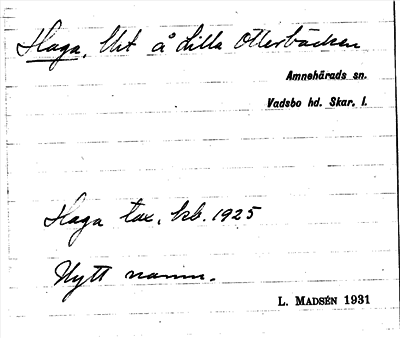 Haga, Urt å Lilla Otterbäcken
Amnehärads sn.
Vadsbo hd. Skar. l.
Haga tax. kb. 1925
Nytt namn.
L. MADSÉN 1931